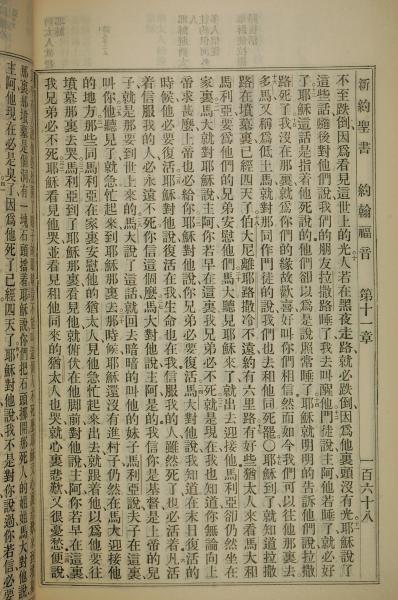 新約聖書 約翰福音 第十一章 一百六十八
不至跌倒因爲看見這世上的光人若在黑夜走路就必跌倒因爲他裏頭沒有光耶穌說了
這些話隨後對他們說我們的朋友拉撒路睡了我去叫醒他門徒說主阿他若睡了就必好
了耶穌這話是指着他死說的他們卻以爲是說照常睡了耶穌就明明的告訴他們說拉撒
路死了我沒在那裏就爲你們的緣故歡喜好叫你們相信然而如今我們可以往他那裏去
多馬又稱爲低土馬就對那同作門徒的說我們也去和他同死罷〇耶穌到了就知道拉撒
路在墳墓裏已經四天了伯大尼離耶路撒冷不遠約有六里路有好些猶太人來看馬大和
馬利亞要爲他們的兄弟安慰他們馬大聽見耶穌來了就出去迎接他馬利亞卻仍然坐在
家裏馬大就對耶穌說主阿你若早在這裏我兄弟必不死就是現在我也知道你無論向上
帝求甚麼上帝也必給你耶穌對他說你兄弟必要復活馬大對他說我知道在末日復活的
時候他必要復活耶穌對他說復活在我生命也在我信服我的人雖然死了也必活着凡活
着信服我的人必永遠不死你信這個麼馬大對他說主阿是的我信你是基督是上帝的兒
子就是那要到世上來的馬大說了這話就回去暗暗的叫他的妹子馬利亞說夫子在這裏
叫你他聽見了就急忙起來到耶穌那裏去那時候耶穌還沒有進村子仍然在馬大迎接他
的地方那些同馬利亞在家裏安慰他的猶太人見他急忙起來出去就跟着他以爲他要往
墳墓那裏去哭馬利亞到了耶穌那裏看見他就俯伏在他脚前對他說主阿你若早在這裏
我兄弟必不死耶穌看見他哭並看見和他同來的猶太人也哭就心裏悲歎又很憂愁便說
那墳墓是個洞有一塊石頭擋着耶穌說你們把石頭挪開那死人的姐姐馬大對他說
主阿他現在必是臭了因爲他死了已經四天了耶穌對他說我不是對你說過你若信必要